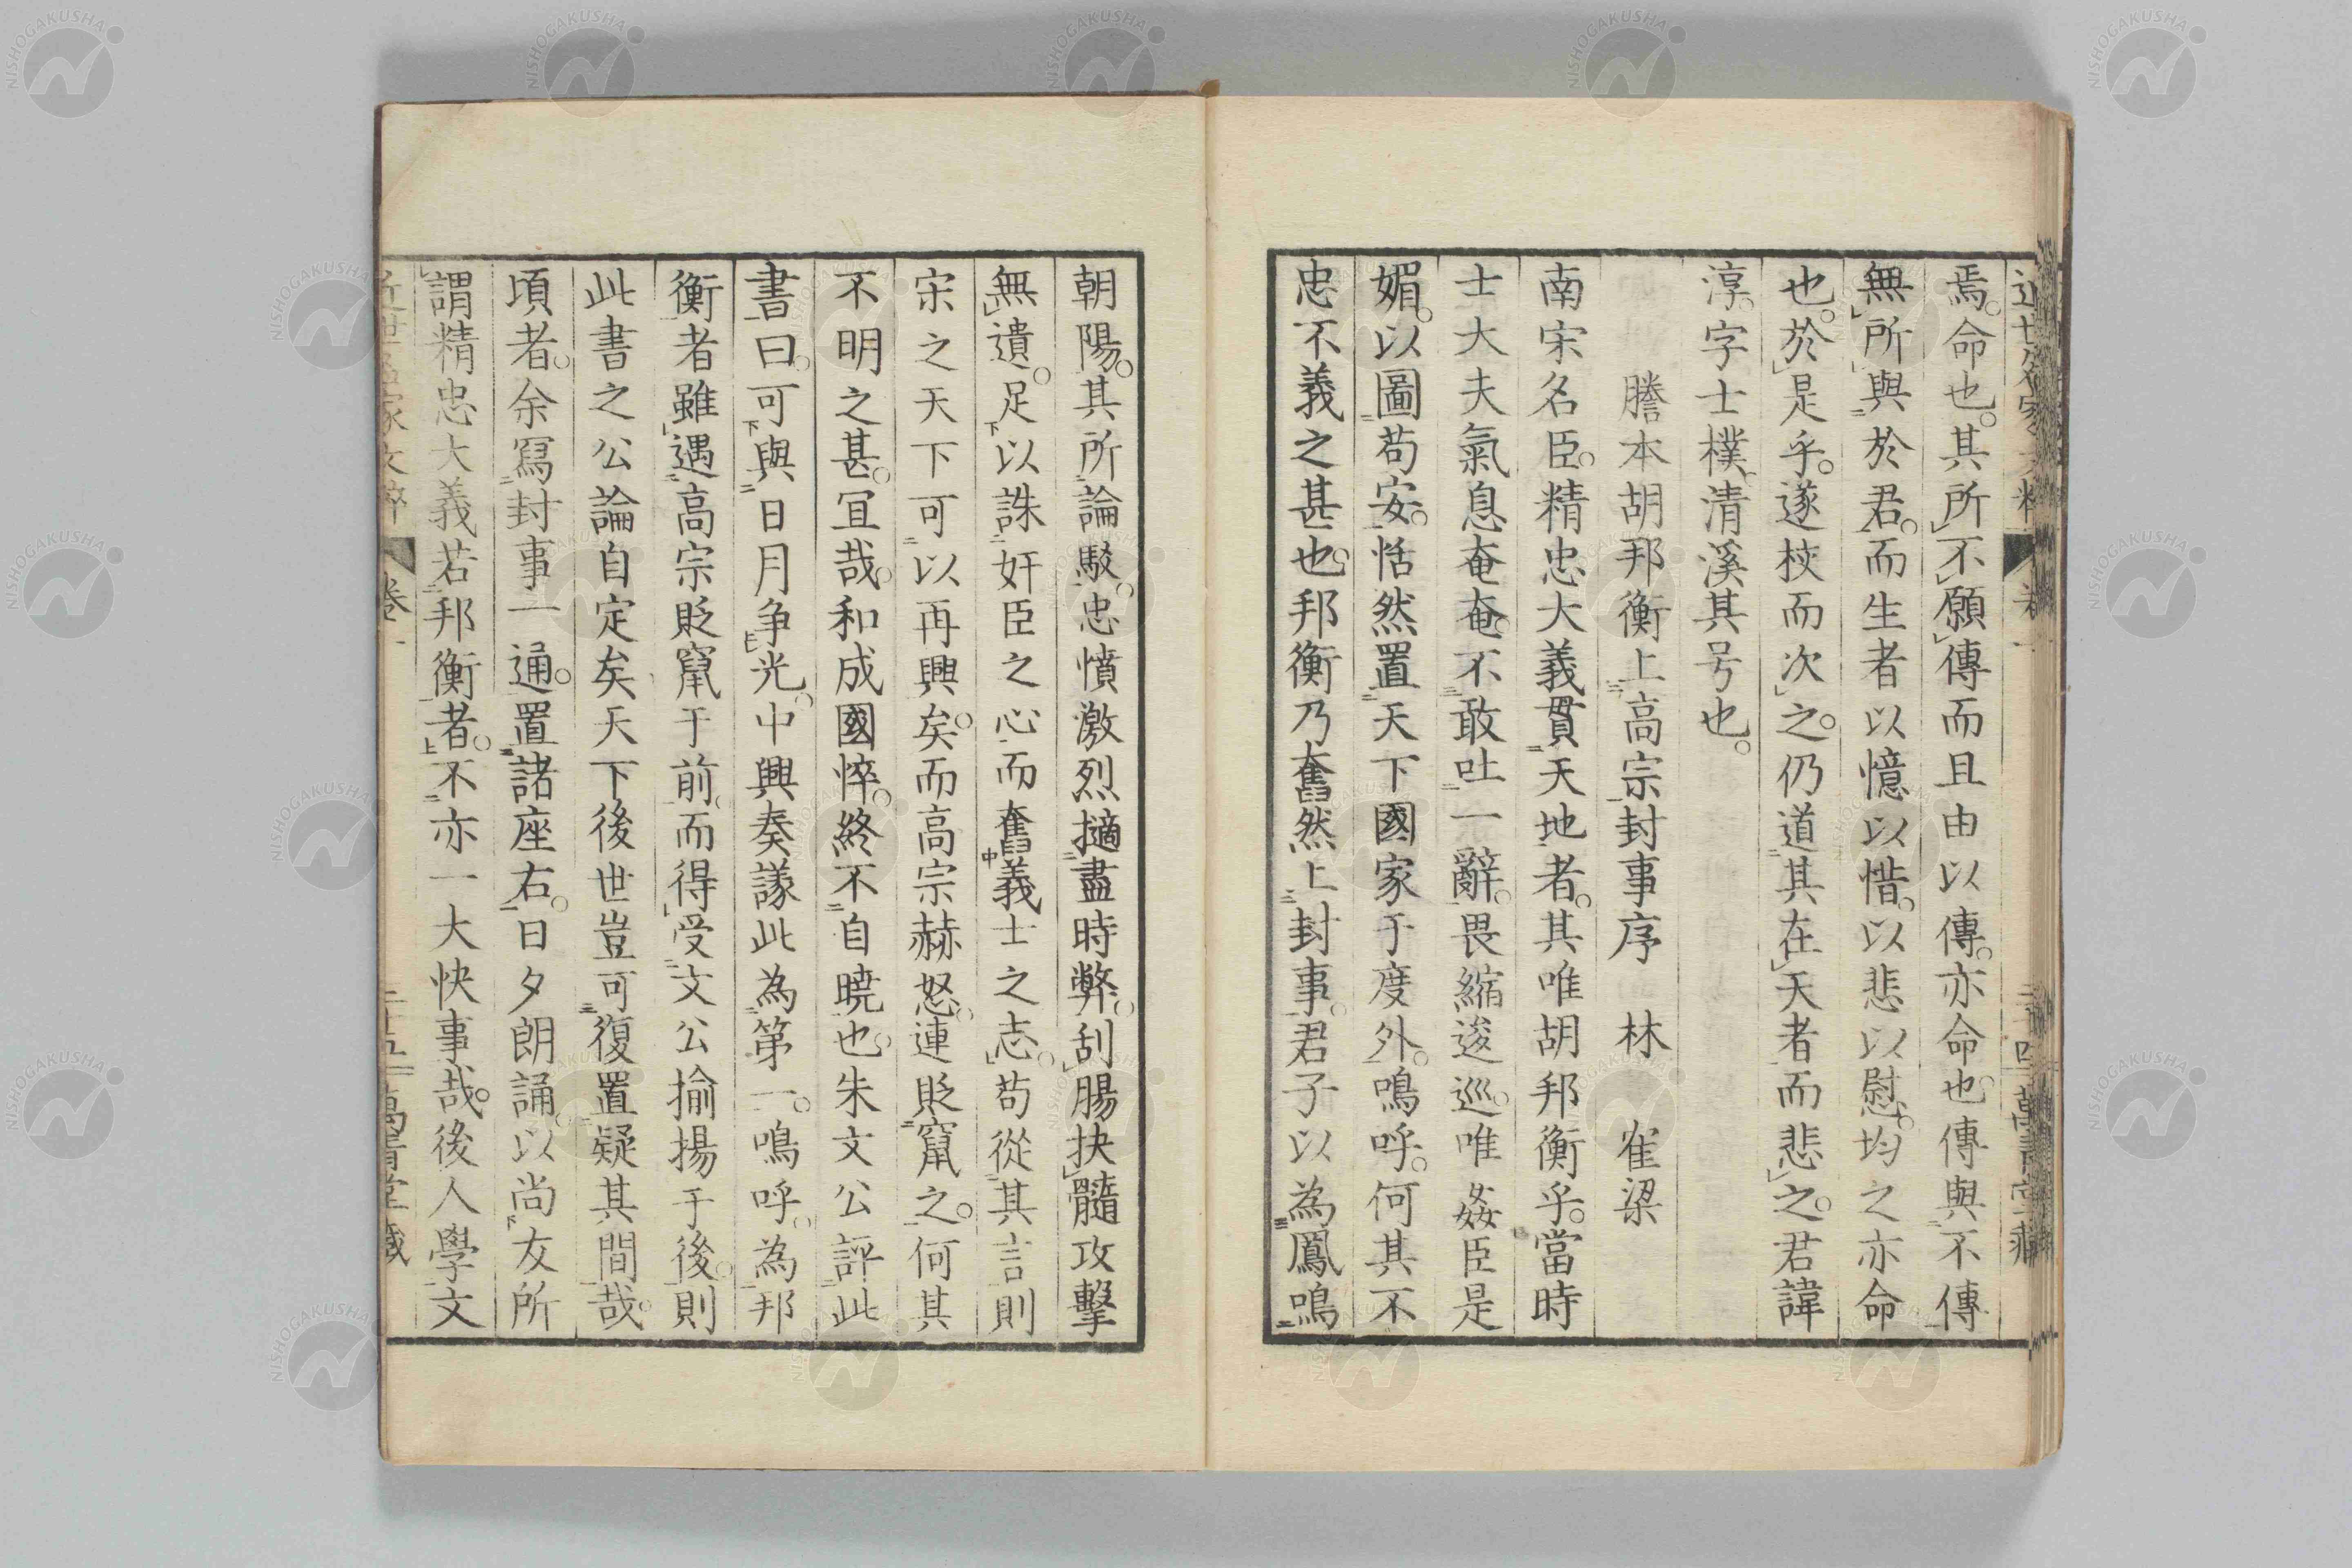 焉。命也。其所不願傳而且由以傳。亦命也傳與不傳
無所與於君。而生者以憶以惜。以悲以慰。均之亦命
也。於是乎。遂校而次之。仍道其在天者而悲之。君諱
淳。字士樸。清溪其号也。
謄本胡邦衡上高宗封事序 林 崔梁
南宋名臣。精忠大義貫天地者。其唯胡邦衡乎。當時
士大夫氣息奄奄。不敢吐一辭。畏縮逡巡。唯姦臣是
媚。以圖苟安。恬然置天下國家于度外。鳴呼。何其不
忠不義之甚也。邦衡乃奮然上封事。君子以為鳳鳴
朝陽。其所論駁。忠憤激烈擿盡時弊。刮腸抉髓攻擊
無遺。足以誅奸臣之心而奮義士之志。苟從其言則
宋之天下可以再興矣。而高宗赫怒。連貶竄之。何其
不明之甚。冝哉。和成國悴。終不自曉也。朱文公評此
書曰。可與日月争光。中興奏議此為第一。鳴呼。為邦
衡者雖遇高宗貶竄于前。而得受文公揄揚于後。則
此書之公論自定矣天下後世豈可復置疑其間哉。
頃者。余冩封事一通。置諸座右。日夕朗誦。以尚友所
謂精忠大義若邦衡者。不亦一大快事哉。後人學文
近世名家文粹 卷一 二十五 萬青堂藏
NISHOGAKUSHA